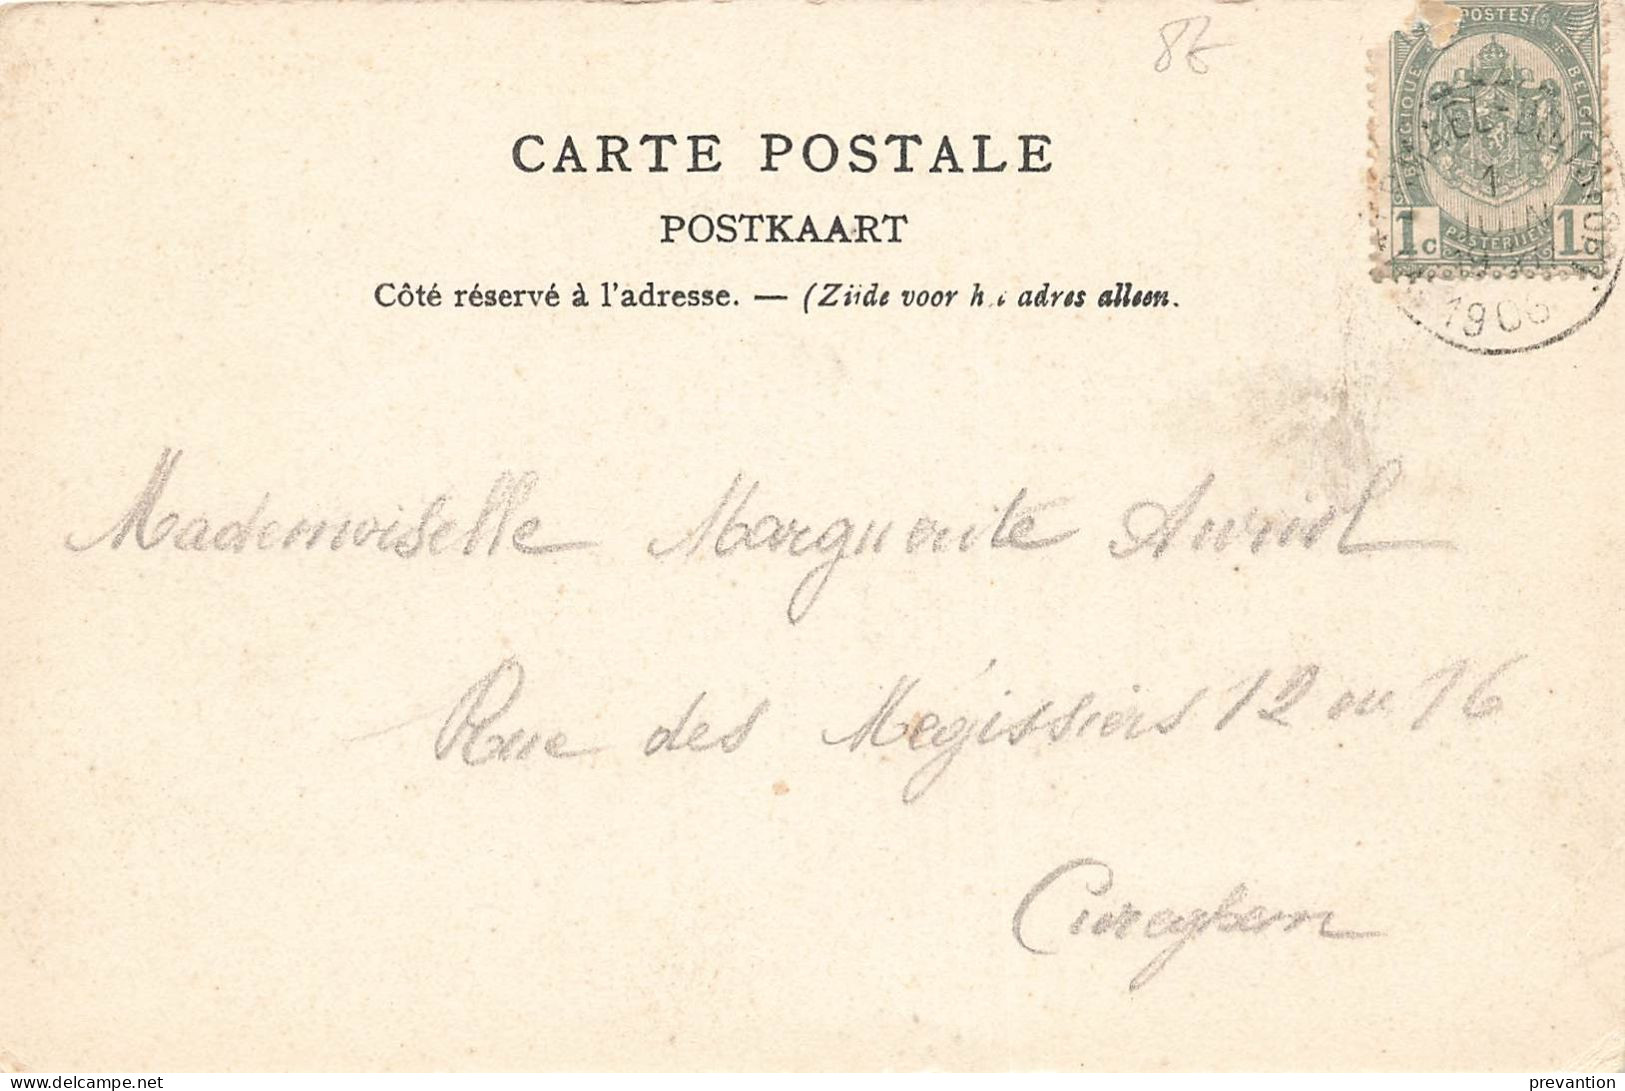 8€
POSTES
BELGIQUE BELGIE
1
JUIN
1c POSTERIJEN 1c
1906
CARTE POSTALE
POSTKAART
Côté réservé à l'adresse. — (Zijde voor het adres alleen.
Mademoiselle Marguerite
Rue des Mégissiers 12 ou 16
Cureghem
prevantion